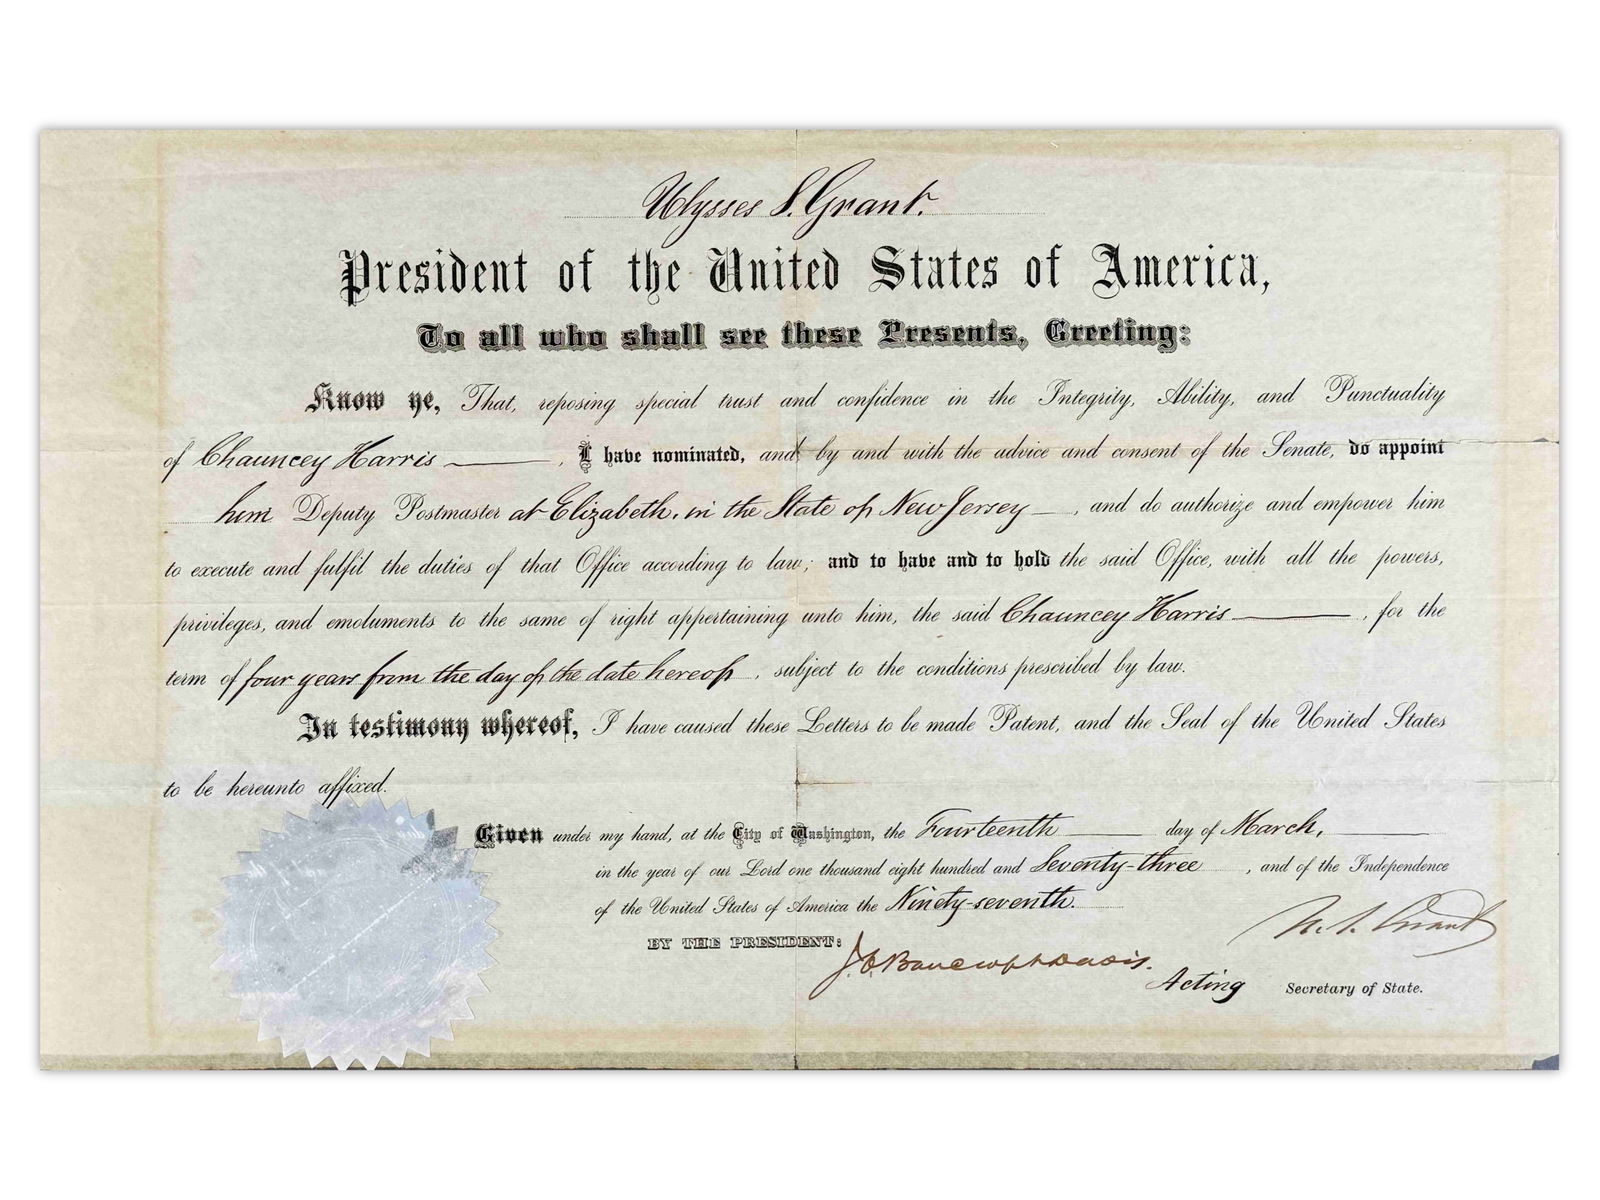 Ulysses S. Grant.
President of the United States of America,
To all who shall see these Presents, Greeting:
Know ye, That, reposing special trust and confidence in the Integrity, Ability, and Punctuality
of Chauncey Harris, I have nominated, and by and with the advice and consent of the Senate, do appoint
him Deputy Postmaster at Elizabeth, in the State of New Jersey, and do authorize and empower him
to execute and fulfil the duties of that Office according to law; and to have and to hold the said Office, with all the powers,
privileges, and emoluments to the same of right appertaining unto him, the said Chauncey Harris, for the
term of four years from the day of the date hereof, subject to the conditions prescribed by law.
In testimony whereof, I have caused these Letters to be made Patent, and the Seal of the United States
to be hereunto affixed.
Given under my hand, at the City of Washington, the Fourteenth day of March,
in the year of our Lord one thousand eight hundred and Seventy-three, and of the Independence
of the United States of America the Ninety-seventh.
U. S. Grant
BY THE PRESIDENT:
J. C. Bancroft Davis.
Acting Secretary of State.